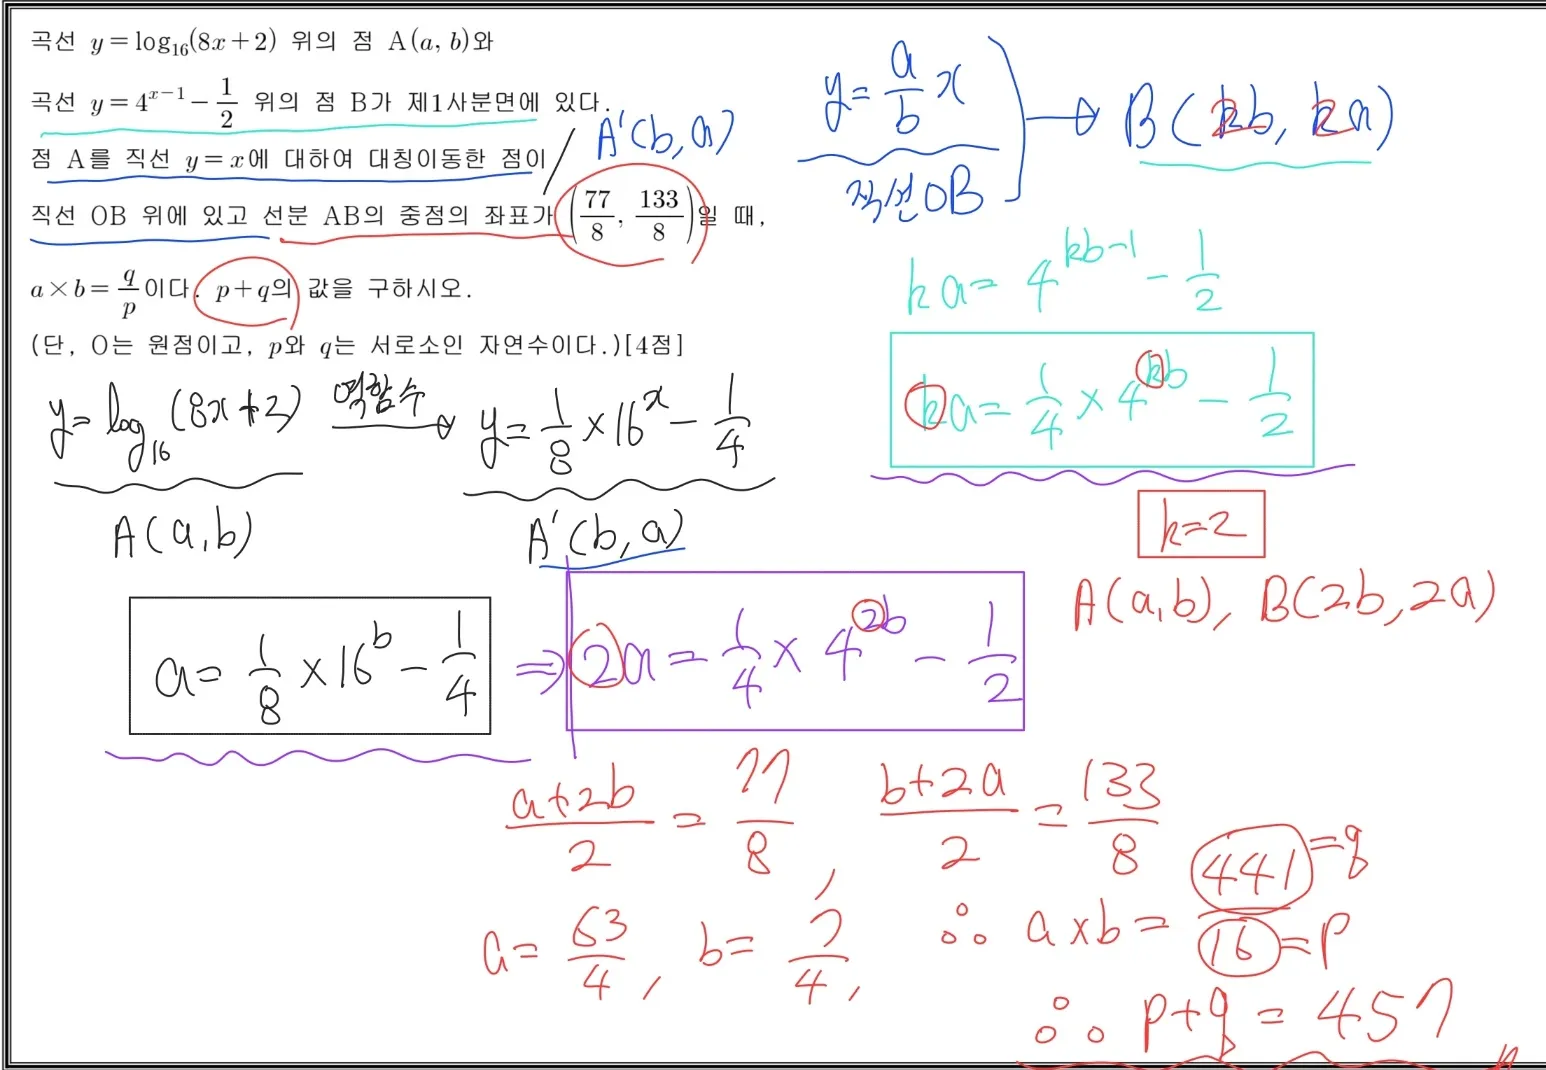 곡선 y = log₁₆(8x+2) 위의 점 A(a, b)와
곡선 y = 4^(x-1) - 1/2 위의 점 B가 제1사분면에 있다.
점 A를 직선 y = x에 대하여 대칭이동한 점이
직선 OB 위에 있고 선분 AB의 중점의 좌표가 (77/8, 133/8)일 때,
a×b = q/p 이다. p+q의 값을 구하시오.
(단, O는 원점이고, p와 q는 서로소인 자연수이다.)[4점]
A'(b, a)
y = a/b x
직선OB
→ B(kb, ka)
ka = 4^(kb-1) - 1/2
ka = 1/4 × 4^(kb) - 1/2
k=2
A(a,b), B(2b, 2a)
y = log₁₆(8x+2) 역함수→ y = 1/8 × 16^x - 1/4
A(a,b)
A'(b, a)
a = 1/8 × 16^b - 1/4 ⇒ 2a = 1/4 × 4^(2b) - 1/2
(a+2b)/2 = 77/8, (b+2a)/2 = 133/8
a = 63/4, b = 7/4, ∴ a×b = 441/16
=q
=p
∴ p+q = 457